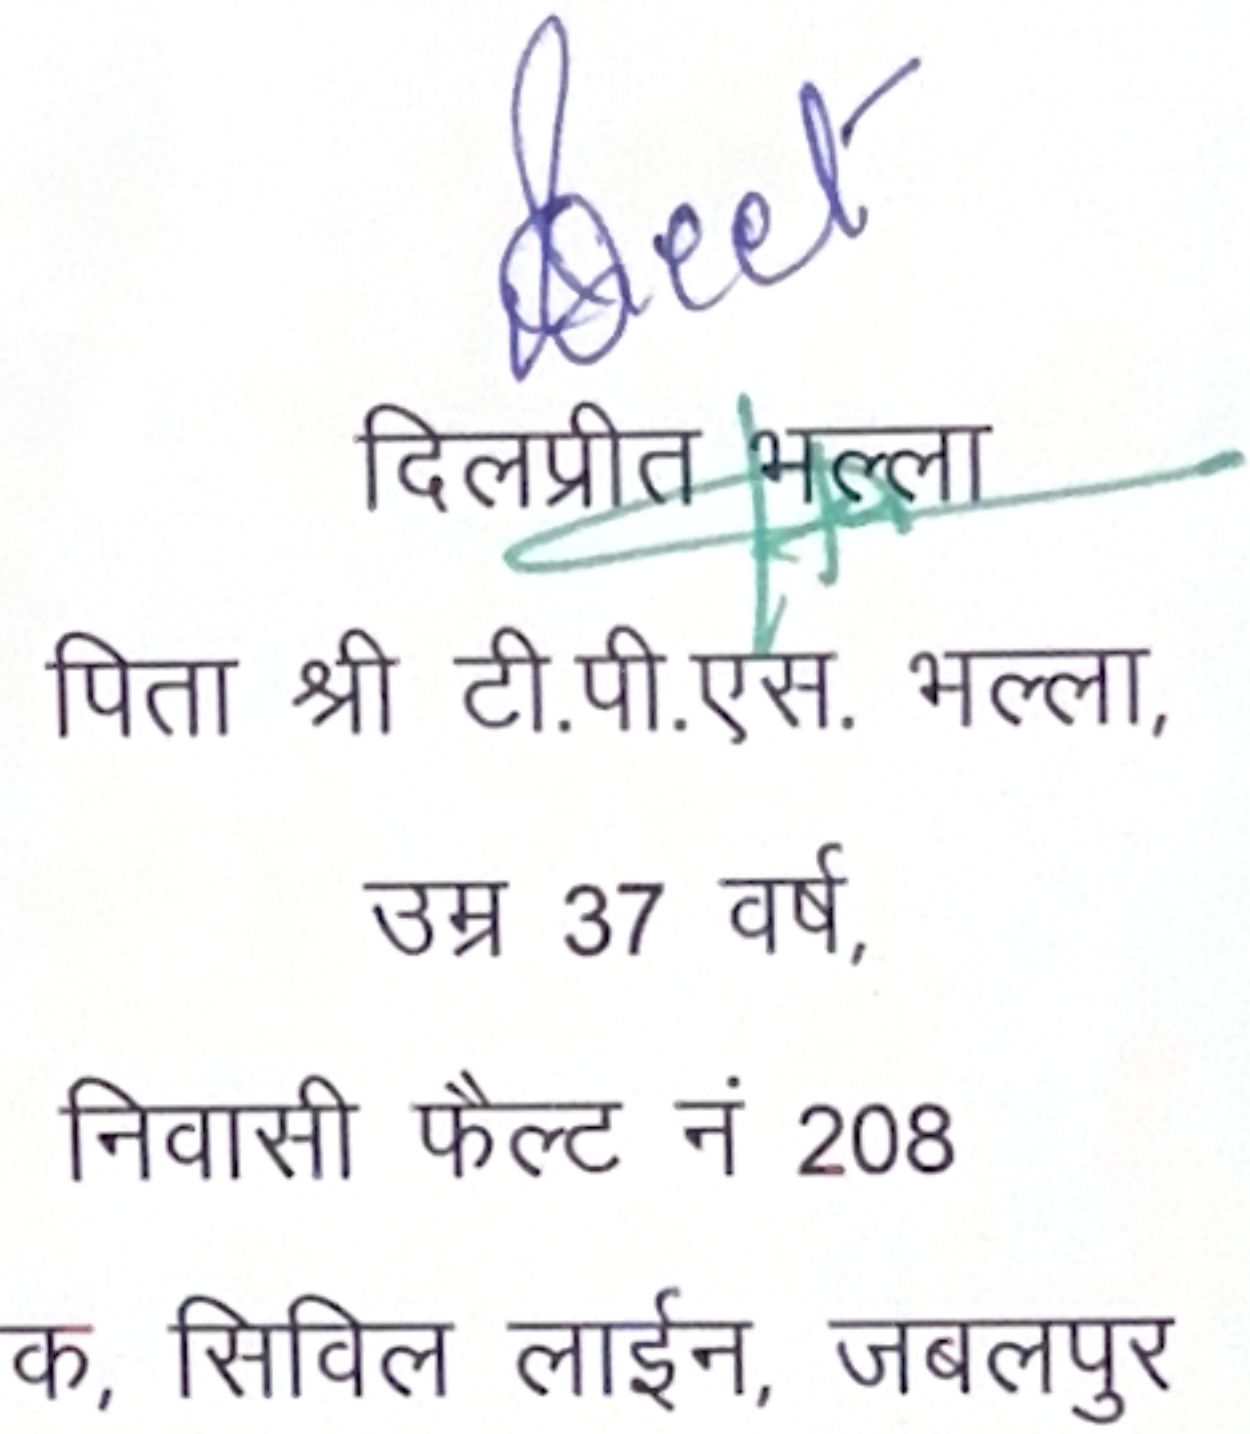 दिलप्रीत भल्ला
पिता श्री टी.पी.एस. भल्ला,
उम्र 37 वर्ष,
निवासी फैल्ट नं 208
क, सिविल लाईन, जबलपुर